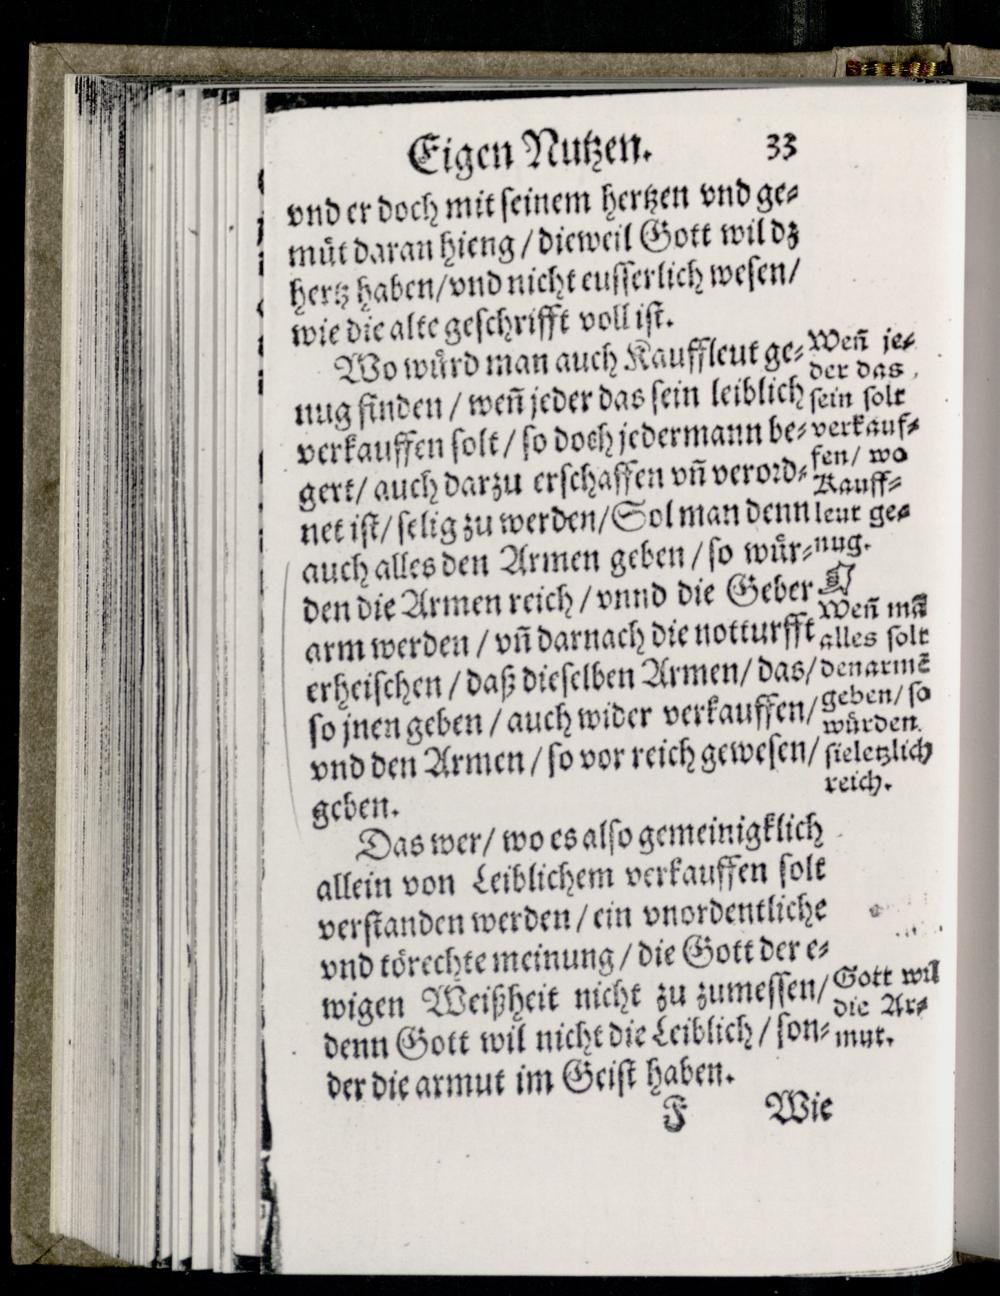 Eigen Nutzen. 33
vnd er doch mit seinem hertzen vnd ge⸗
müt daran hieng / dieweil Gott wil dz
hertz haben/vnd nicht eusserlich wesen/
wie die alte geschrifft voll ist.
Wo würd man auch Kauffleut ge⸗
nug finden / weñ jeder das sein leiblich
verkauffen solt / so doch jedermann be⸗
gert/ auch darzu erschaffen vñ verord⸗
net ist/ selig zu werden/Sol man denn
auch alles den Armen geben / so wür⸗
den die Armen reich / vnnd die Geber
arm werden / vñ darnach die notturfft
erheischen / daß dieselben Armen/ das/
so jnen geben / auch wider verkauffen/
vnd den Armen / so vor reich gewesen/
geben.
Das wer/ wo es also gemeinigklich
allein von Leiblichem verkauffen solt
verstanden werden / ein vnordentliche
vnd törechte meinung / die Gott der e⸗
wigen Weißheit nicht zu zumessen/
denn Gott wil nicht die Leiblich / son⸗
der die armut im Geist haben.
F Wie
Weñ je⸗
der das
sein solt
verkauf⸗
fen/ wo
Kauff⸗
leut ge⸗
nug.
Weñ mã
alles solt
den armẽ
geben/ so
würden
sie letzlich
reich.
Gott wil
die Ar⸗
mut.